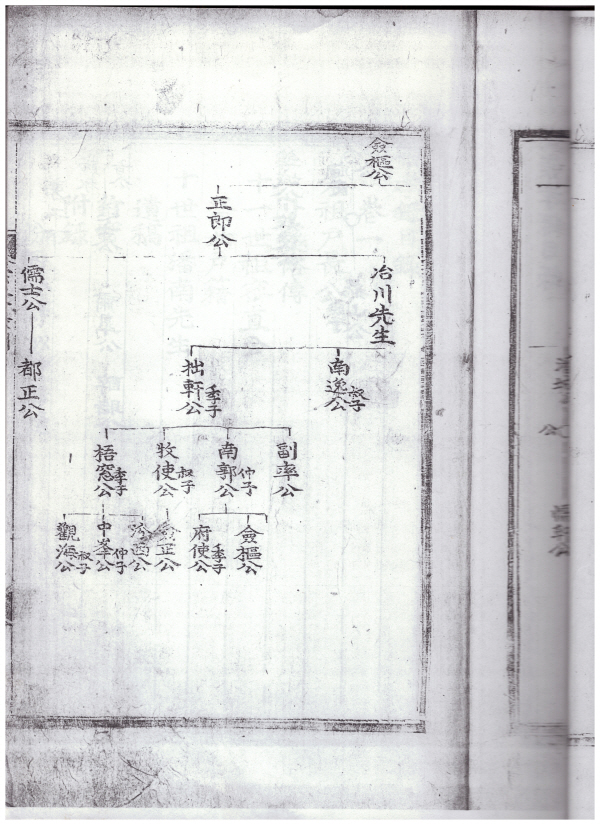 僉樞公
正郎公
冶川先生
儒士公
都正公
南逸公 叔子
拙軒公 季子
副率公
南郭公 仲子
牧使公 叔子
梧窓公 季子
僉樞公
府使公 季子
僉正公
汾西公
中峯公 仲子
觀海公 叔子